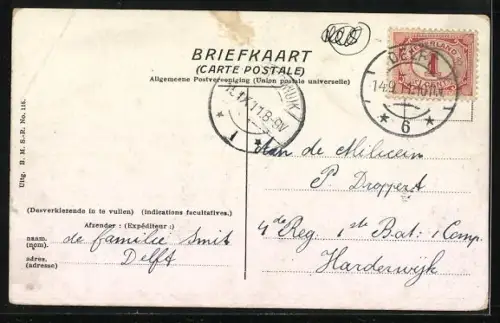 BRIEFKAART
(CARTE POSTALE)
Algemeene Postvereeniging (Union postale universelle)
NEDERLAND
1
DELFT
6
1
Uitg. B. M. S.-R. No. 116.
Aan de Milicien
P. Droppert
4de Reg. 1ste Bat: 1 Comp.
Harderwijk
(Desverkiezende in te vullen) (indications facultatives.)
Afzender : (Expéditeur :)
naam. (nom). de familie Smit
adres. (adresse) Delft